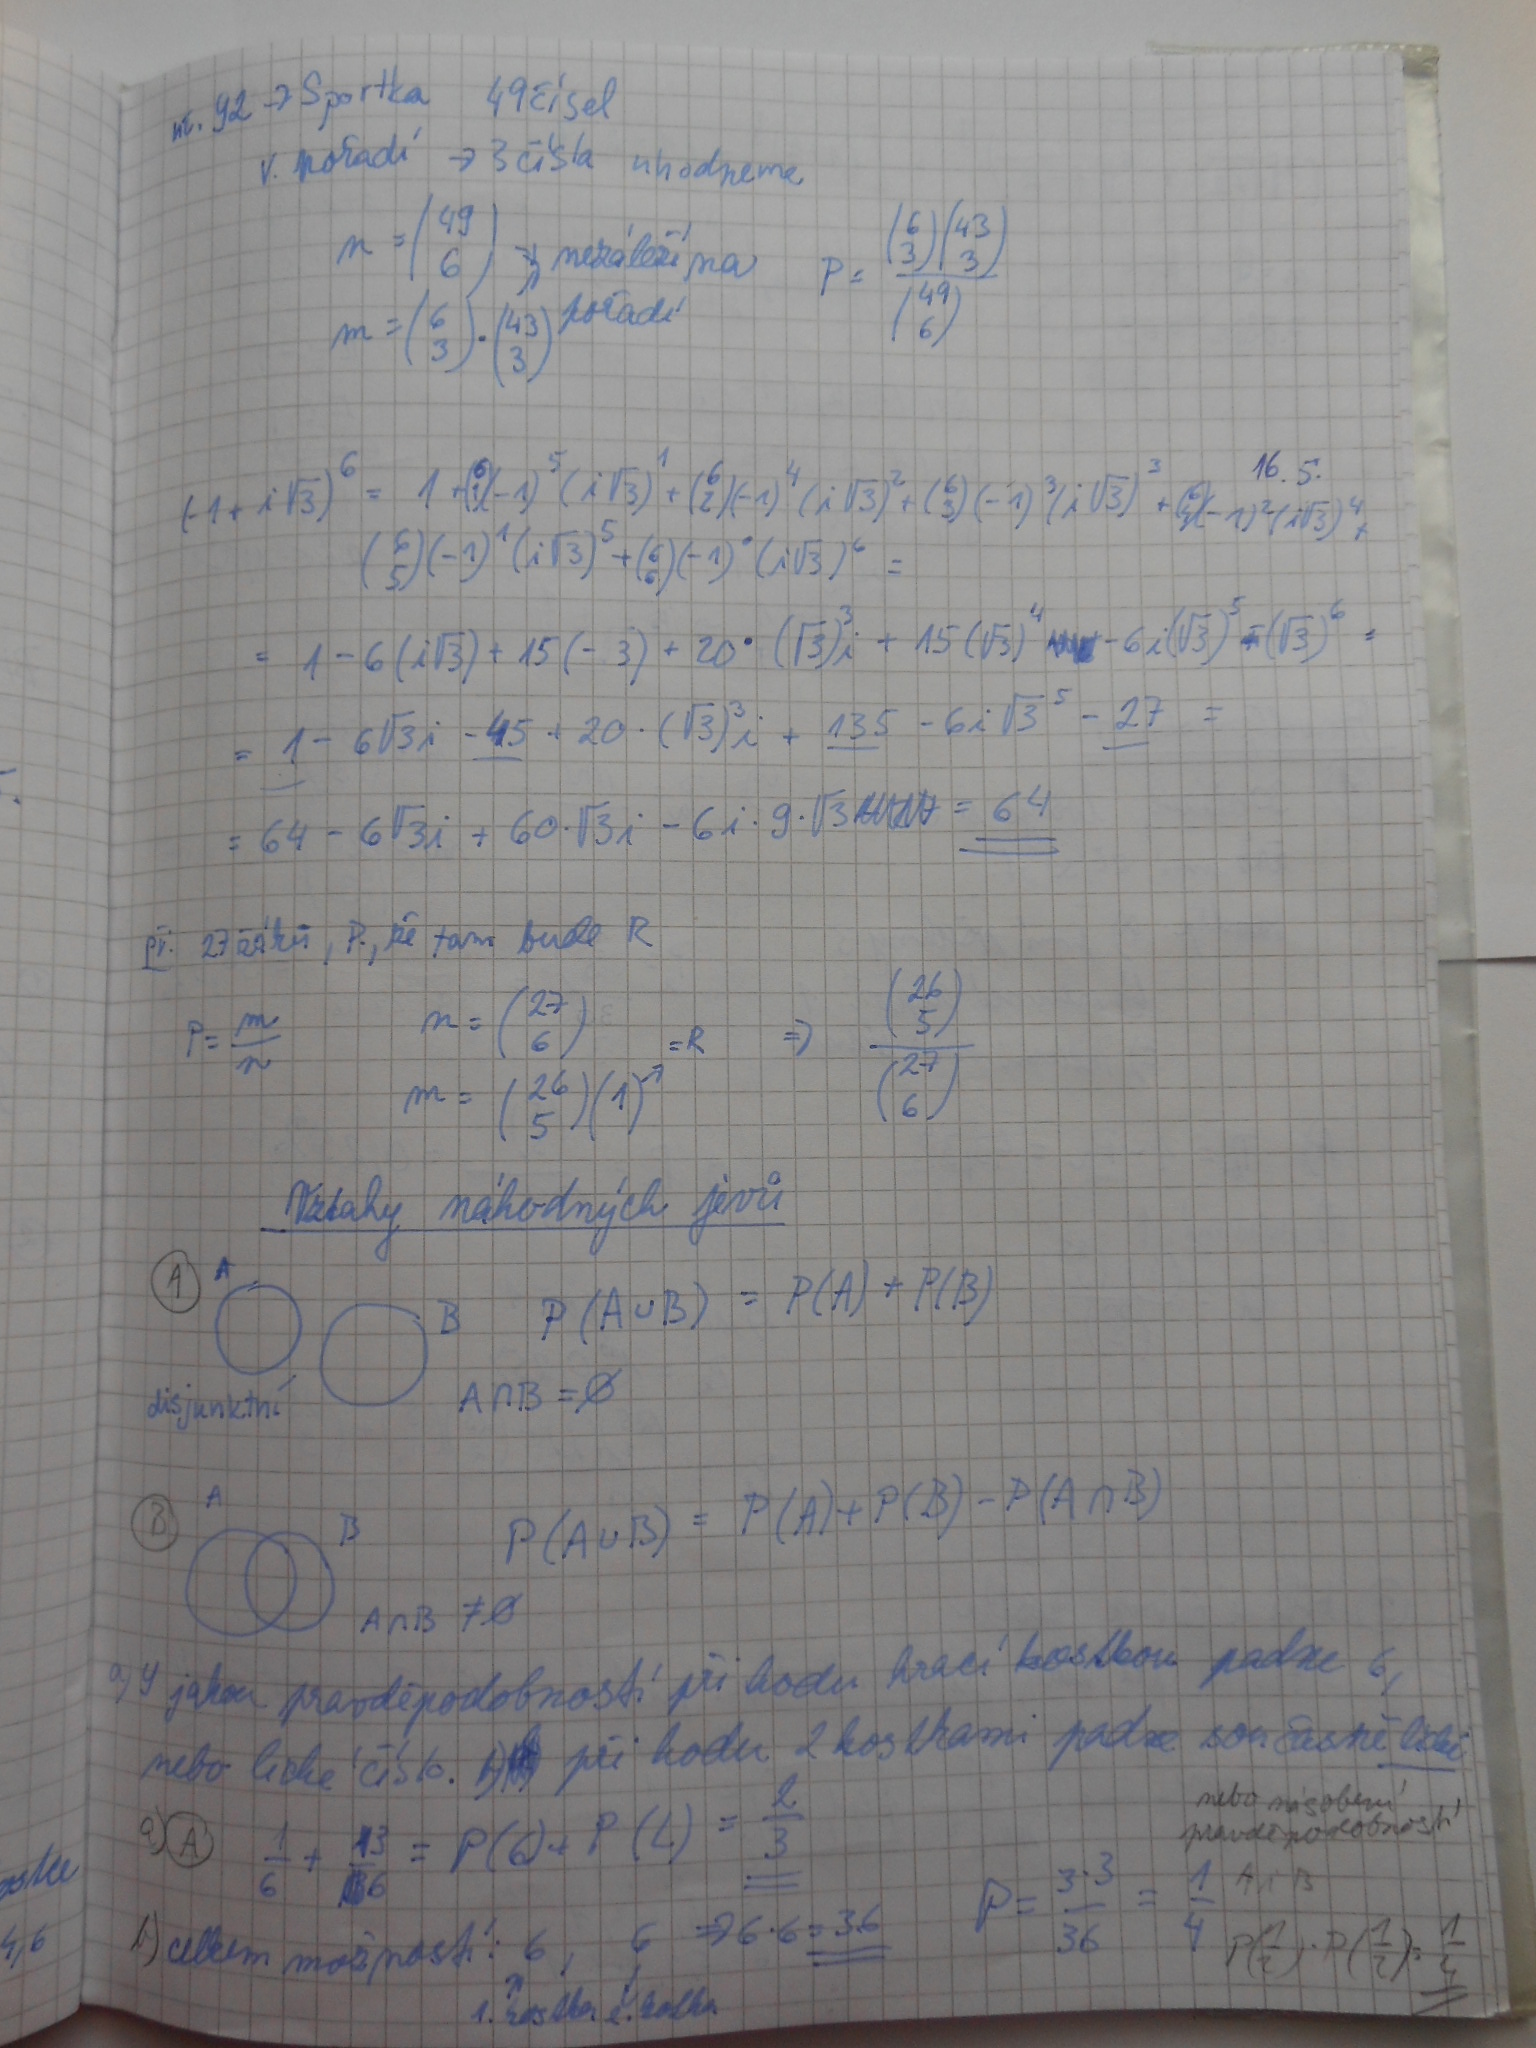 92 → Sportka 49 čísel
v. pořadí → 3 čísla uhodneme
n = (49 6) → nezáleží na pořadí
m = (6 3) · (43 3)
P = (6 3)(43 3) / (49 6)
16. 5.
(-1 + i√3)^6 = 1 + (6 1)(-1)^5 (i√3)^1 + (6 2)(-1)^4 (i√3)^2 + (6 3)(-1)^3 (i√3)^3 + (6 4)(-1)^2 (i√3)^4 +
(6 5)(-1)^1 (i√3)^5 + (6 6)(-1)^0 (i√3)^6 =
= 1 - 6(i√3) + 15(-3) + 20 · (√3)^3 i + 15(√3)^4 - 6i(√3)^5 - (√3)^6 =
= 1 - 6√3i - 45 + 20 · (√3)^3 i + 135 - 6i√3^5 - 27 =
= 64 - 6√3i + 60·√3i - 6i · 9 · √3 = 64
př. 27 žáků, P., že tam bude R
P = m/n
n = (27 6)
m = (26 5)(1) → = R
⇒ (26 5) / (27 6)
Vztahy náhodných jevů
A A B P(A∪B) = P(A) + P(B)
disjunktní A∩B = ∅
B A B P(A∪B) = P(A) + P(B) - P(A∩B)
A∩B ≠ ∅
jakou pravděpodobností při hodu hrací kostkou padne 6,
nebo liché číslo. b) při hodu 2 kostkami padne současně liché
nebo násobení
pravděpodobností
a) A 1/6 + 3/6 = P(6) + P(L) = 2/3
A∩B
b) celkem možností: 6, 6 ⇒ 6·6 = 36
P = 3·3/36 = 1/4
P(1/2) · P(1/2) = 1/4
1. kostka 2. kostka
4,6